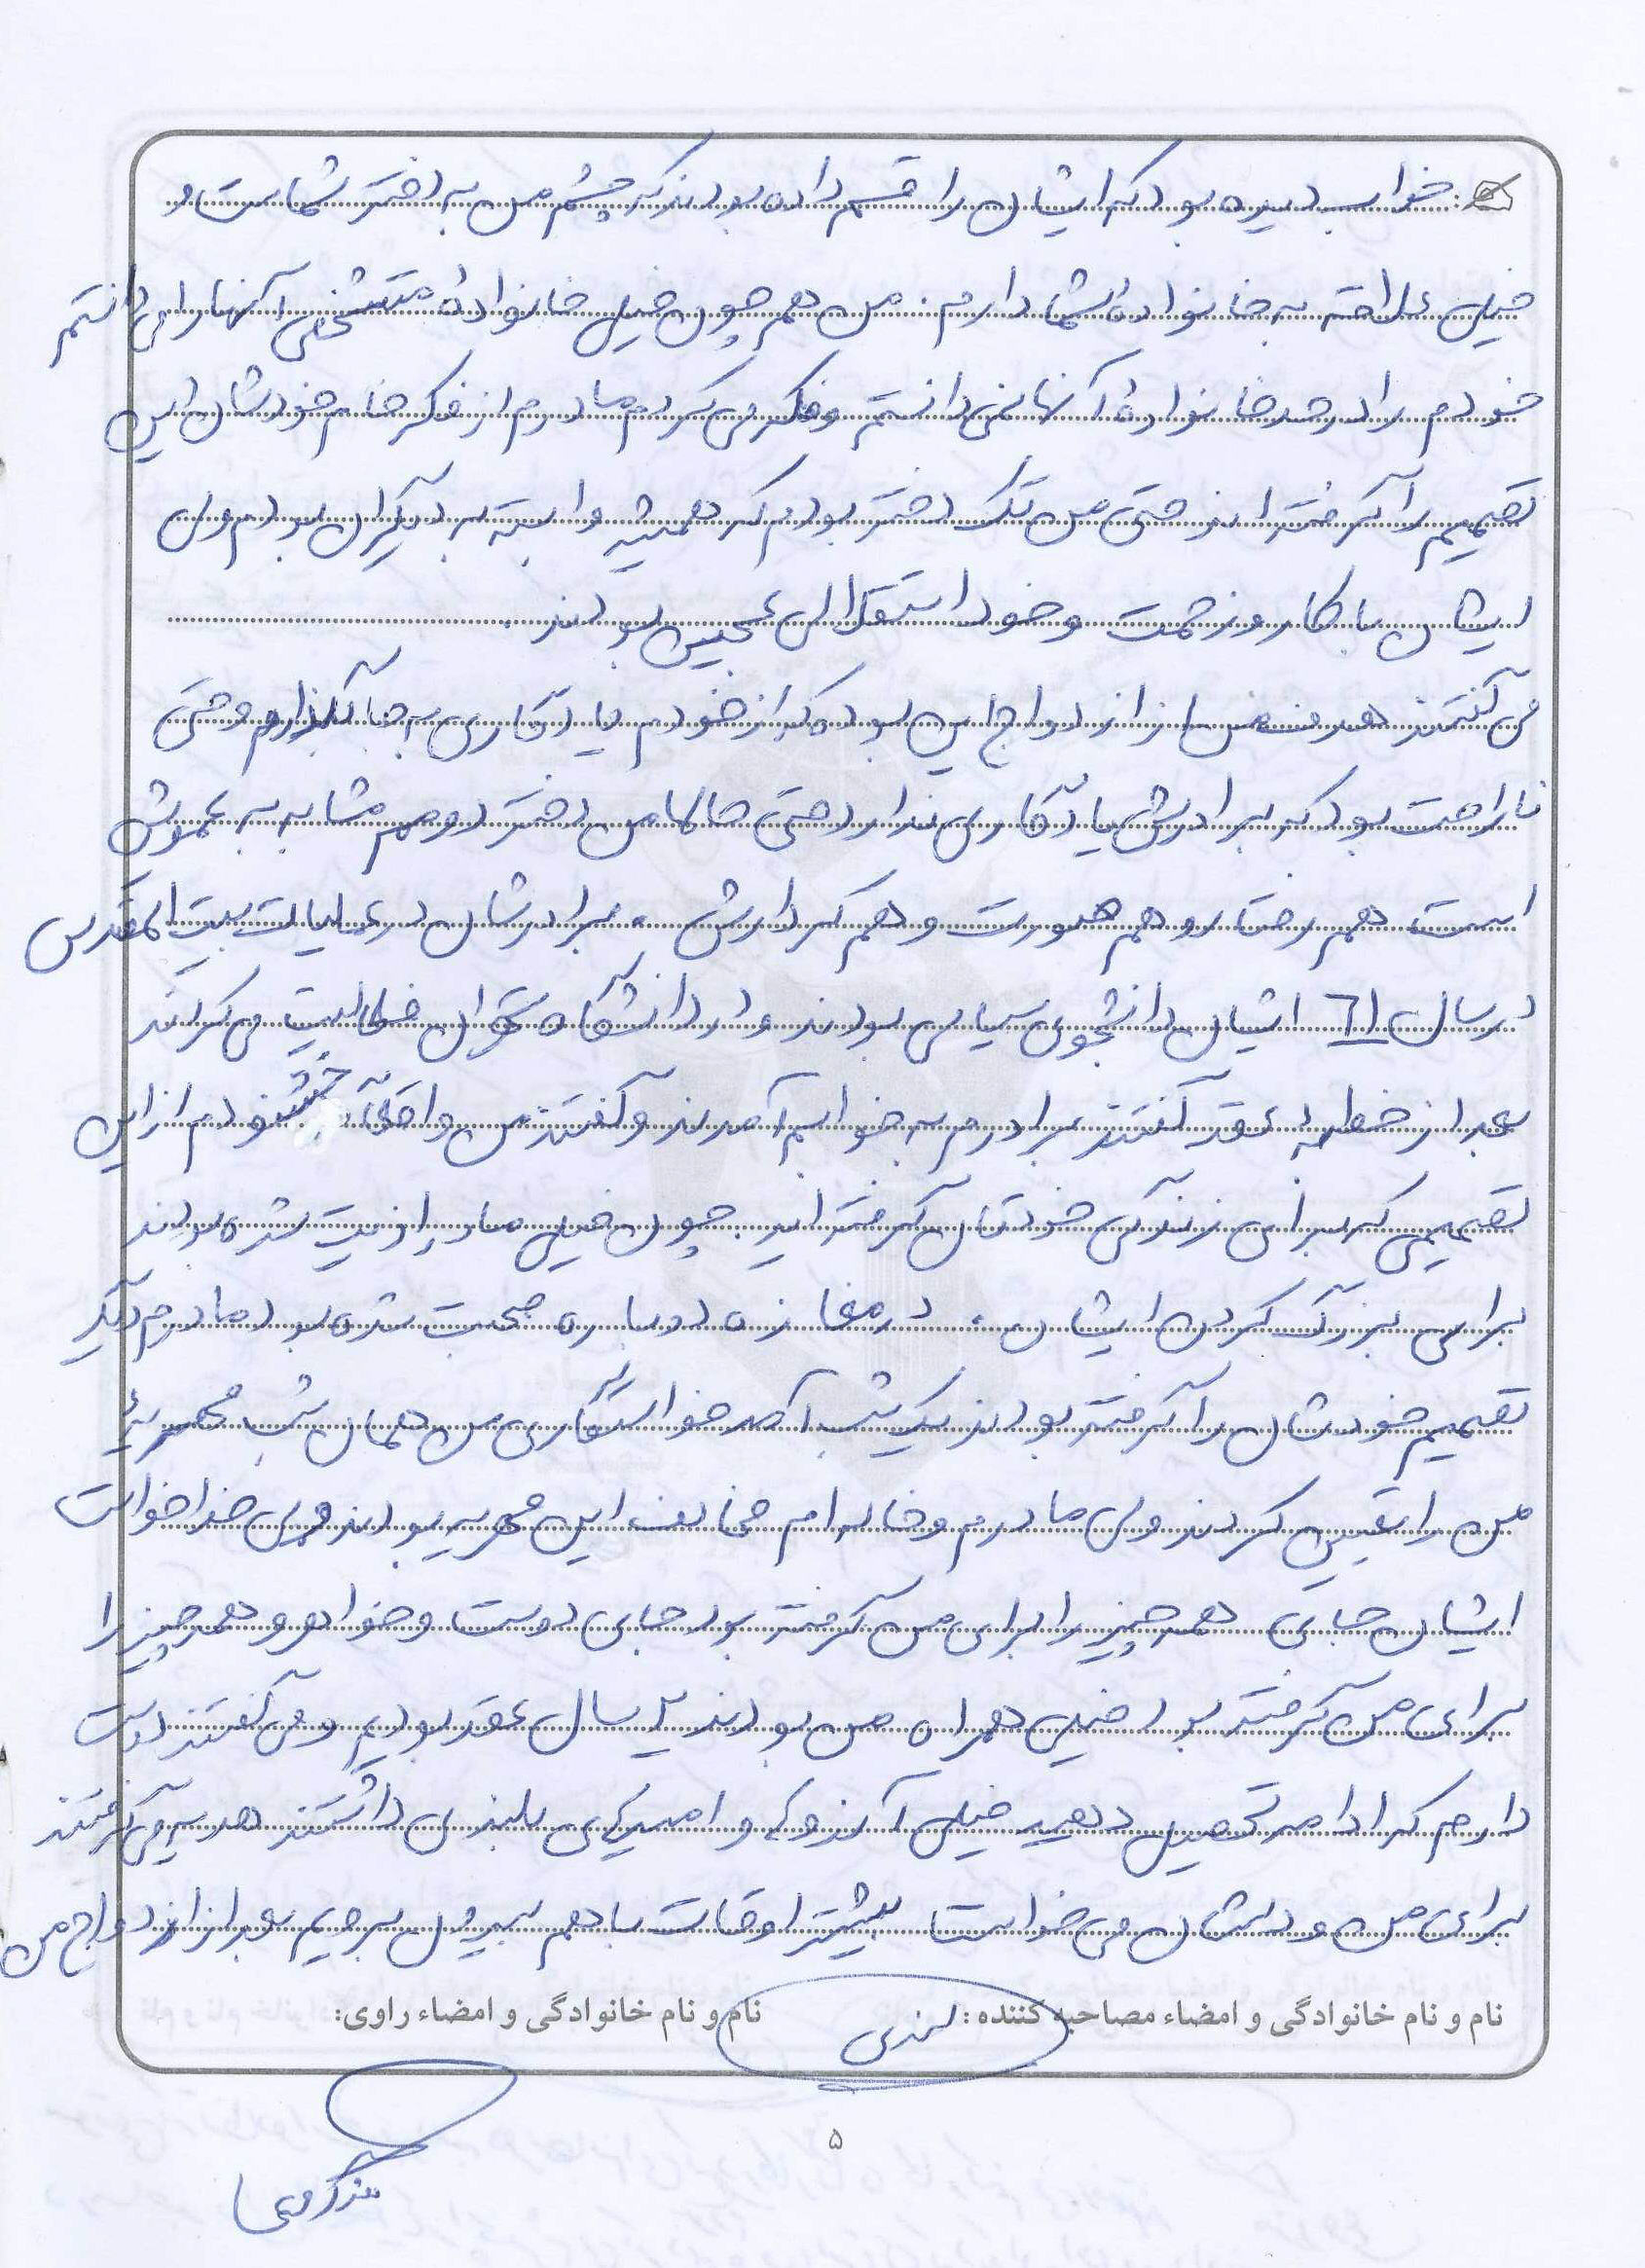 خواب دیده بود که ایشان را قسم داده بودند که چشم من به دختر شماست و
خیلی علاقه به خانوادهٔ شما دارم. من هم چون خیلی خانوادهٔ متشخصی آنها را می دانستم
خودم را در حد خانوادهٔ آنها نمی دانستم و فکر می کردم مادرم از فکر خام خودشان این
تصمیم را گرفته اند حتی من تک دختر بودم که همیشه وابسته به دیگران بودم ولی
ایشان با کار و زحمت و خود استقلالی عجیبی بودند.
می گفتند هدف من از ازدواج این بوده که از خودم یادگاری به جا بگذارم و حتی
ناراحت بود که برادرش یادگاری ندارد حتی حالا من دختر دومم مشابه به عمویش
است هم رفتار و هم صورت و هم کردارش. برادرشان در عملیات بیت المقدس
در سال ٦١ ایشان دانشجوی سیاسی بودند و در دانشگاه تهران فعالیت می کردند
بعد از خطبهٔ عقد گفتند برادرم به خوابم آمدند و گفتند من واقعاً خشنودم از این
تصمیمی که برای زندگی خودتان گرفته اید. چون خیلی مادر اذیت شده بودند
برای بزرگ کردن ایشان. در مغازه دوباره صحبت شده بود مادرم دیگر
تصمیم خودشان را گرفته بودند یک شب آمد خواستگاری من همان شب مهریهٔ
من را تعیین کردند ولی مادرم و خاله ام مخالف این مهریه بودند ولی خدا خواست
ایشان جای همه چیز را برای من گرفته بود جای دوست و خواهر و همه چیز را
برای من گرفته بود خیلی همراه من بودند ٢ سال عقد بودیم و می گفتند دوست
دارم که ادامه تحصیل دهید خیلی آرزوها و امیدهای بلندی داشتند هدیه می گرفتند
برای من و دلشان می خواست بیشتر اوقات با هم بیرون برویم بعد از ازدواج من
نام و نام خانوادگی و امضاء مصاحبه کننده:
نام و نام خانوادگی و امضاء راوی:
۵